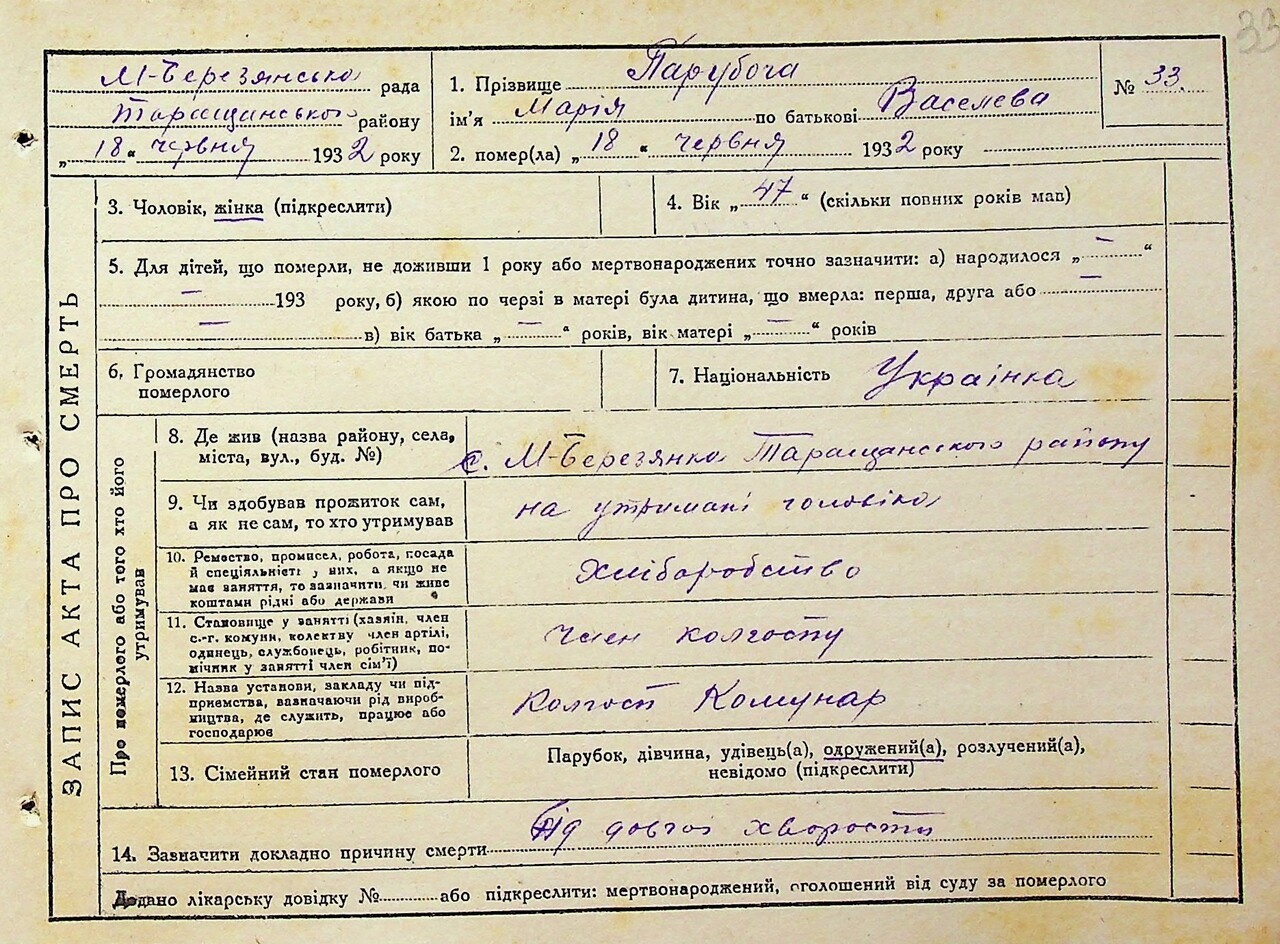 33
М-Березянська рада
Таращанського району
„18“ червня 1932 року
1. Прізвище Парубоча
ім'я Марія по батькові Васелева
2. помер(ла) „18“ червня 1932 року
№ 33.
ЗАПИС АКТА ПРО СМЕРТЬ
3. Чоловік, жінка (підкреслити)
4. Вік „47“ (скільки повних років мав)
5. Для дітей, що померли, не доживши 1 року або мертвонароджених точно зазначити: а) народилося „ – “
– 193 року, б) якою по черзі в матері була дитина, що вмерла: перша, друга або –
– в) вік батька „ – “ років, вік матері „ – “ років
6. Громадянство
померлого
7. Національність Українка
Про померлого або того хто його
утримував
8. Де жив (назва району, села,
міста, вул., буд. №)
с. М-Березянка Таращанского району
9. Чи здобував прожиток сам,
а як не сам, то хто утримував
на утримані чоловіка
10. Ремество, промисел, робота, посада
й спеціяльність у них, а якщо не
має заняття, то зазначити, чи живе
коштами рідні або держави
Хліборобство
11. Становище у занятті (хазяін, член
с.-г. комуни, колективу член артілі,
одинець, службонець, робітник, по-
мічник у занятті член сім'ї)
член колгоспу
12. Назва установи, закладу чи під-
приємства, вазначаючи рід вироб-
ництва, де служить, працює або
господарює
Колгосп Комунар
13. Сімейний стан померлого
Парубок, дівчина, удівець(а), одружений(а), розлучений(а),
невідомо (підкреслити)
Від довгої хворости
14. Зазначити докладно причину смерти
Додано лікарську довідку № або підкреслити: мертвонароджений, оголошений від суду за померлого